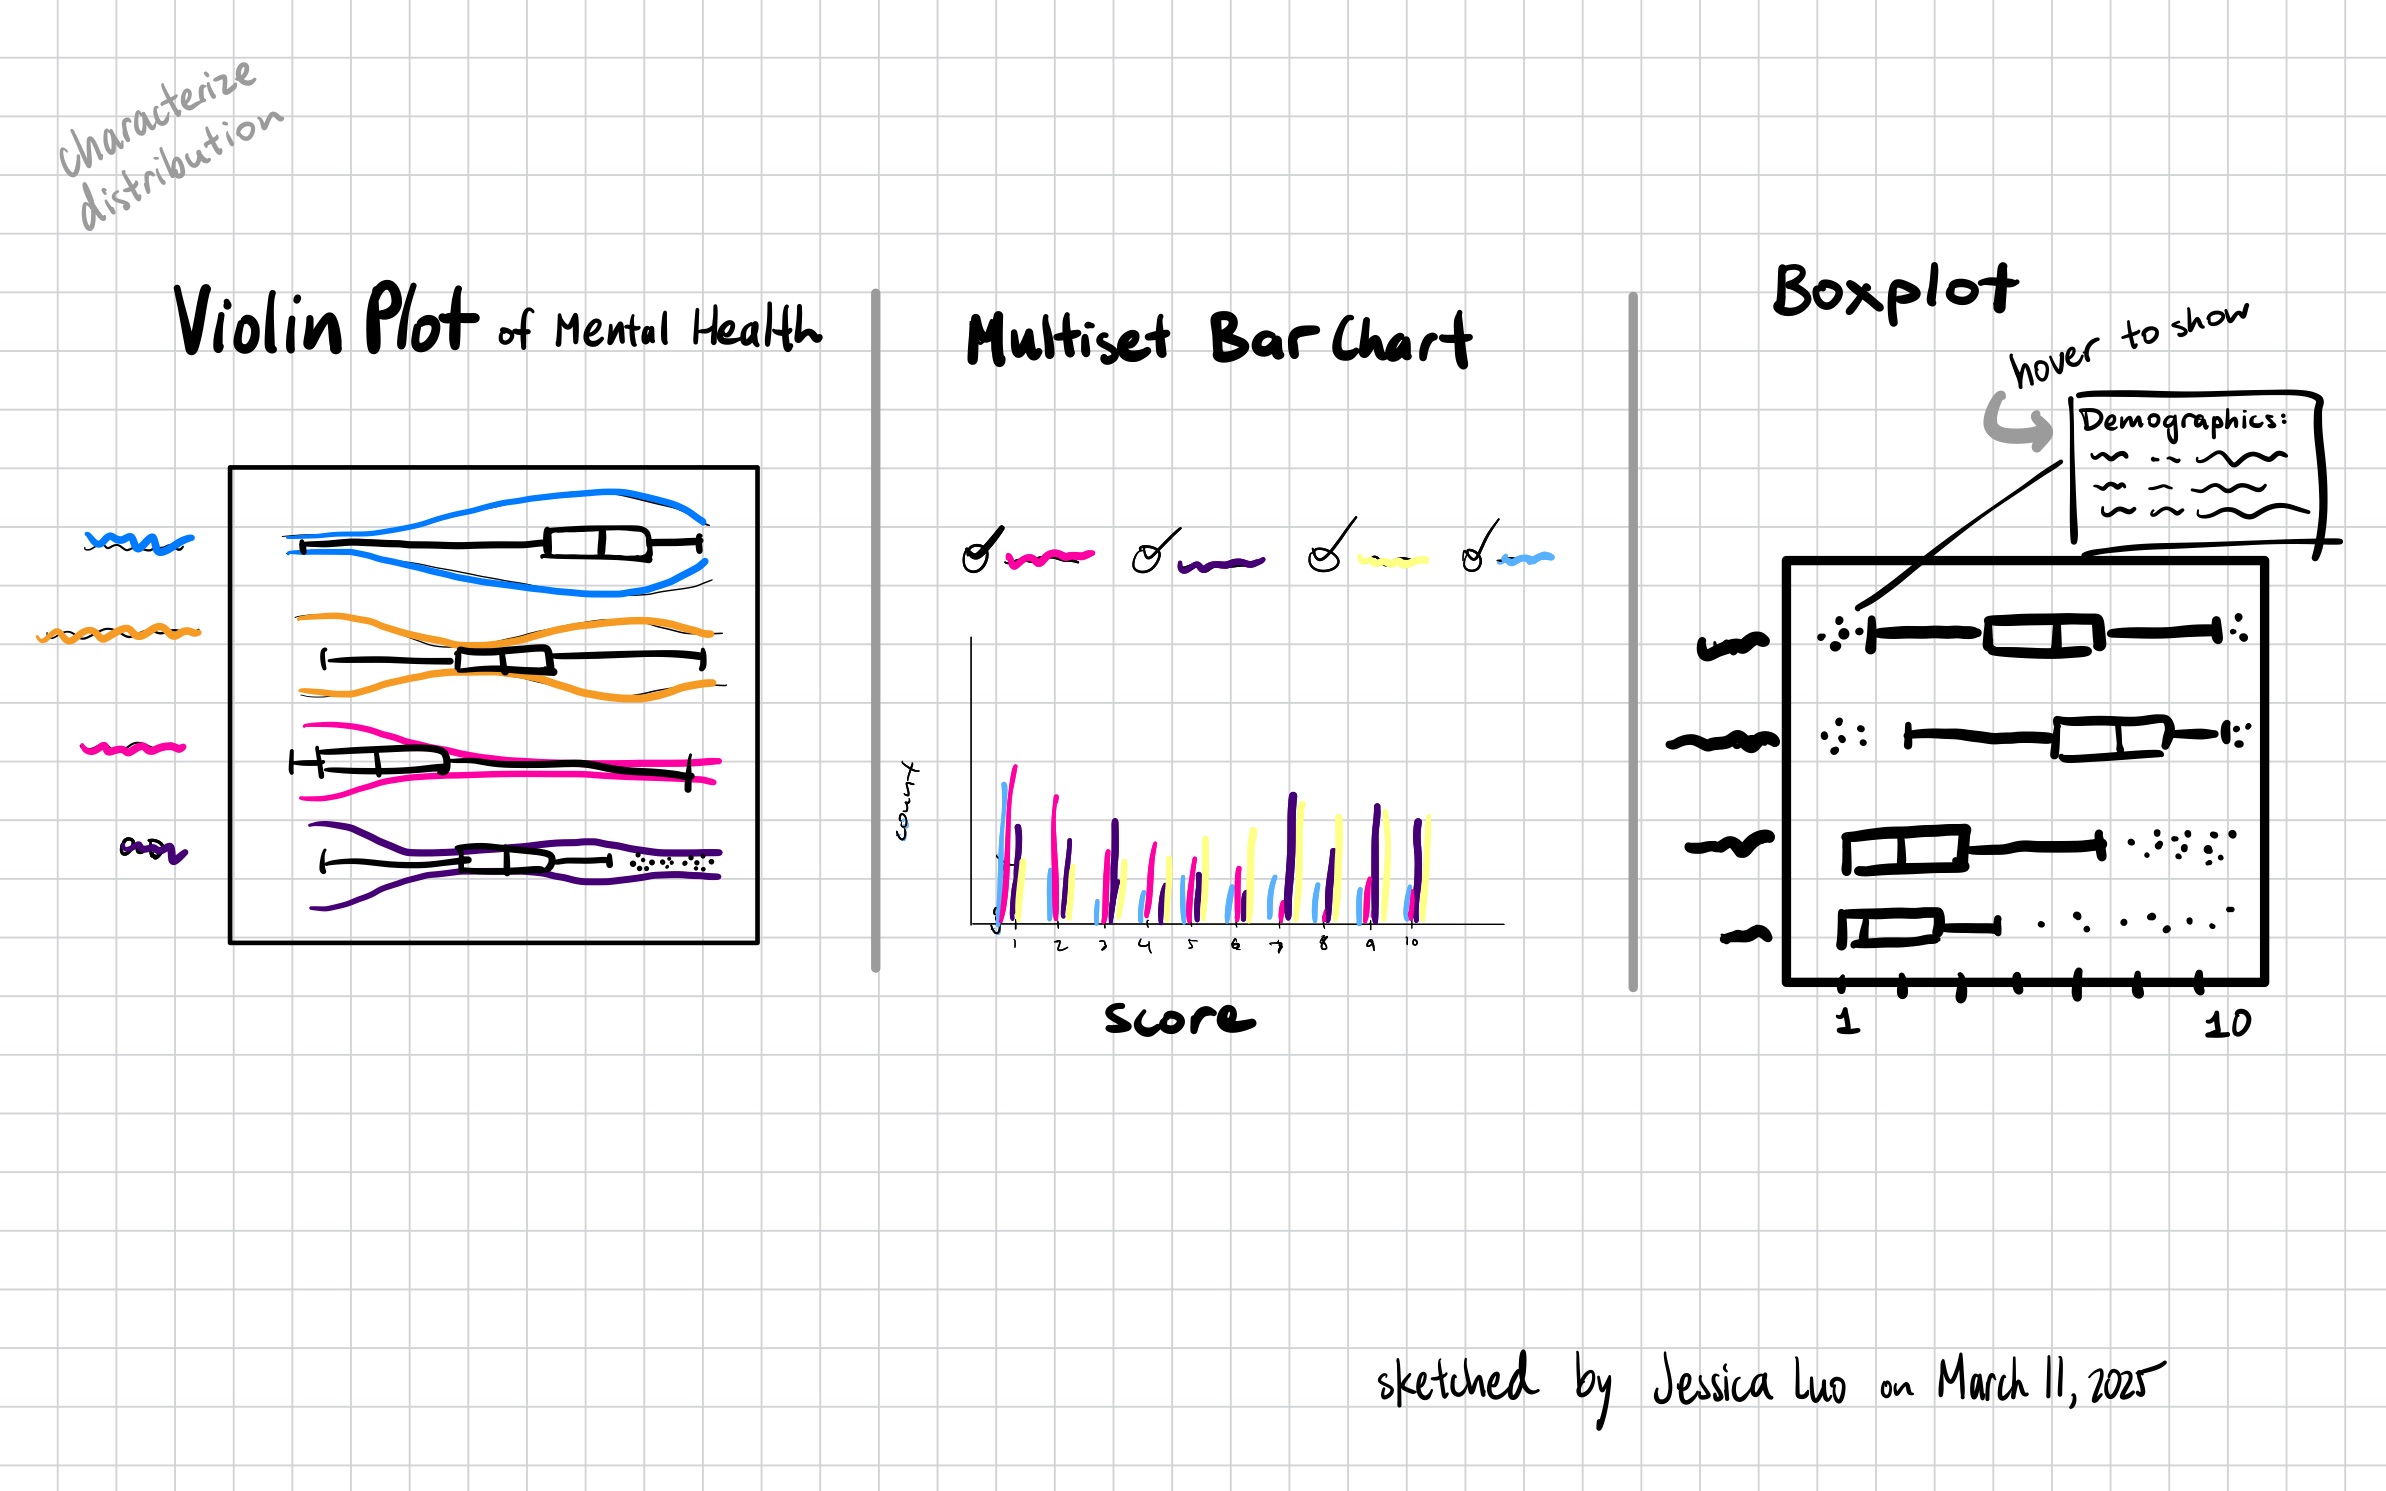 characterize
distribution
Violin Plot of Mental Health
Multiset Bar Chart
count
1 2 3 4 5 6 7 8 9 10
score
Boxplot
hover to show
Demographics:
1 10
sketched by Jessica Luo on March 11, 2025